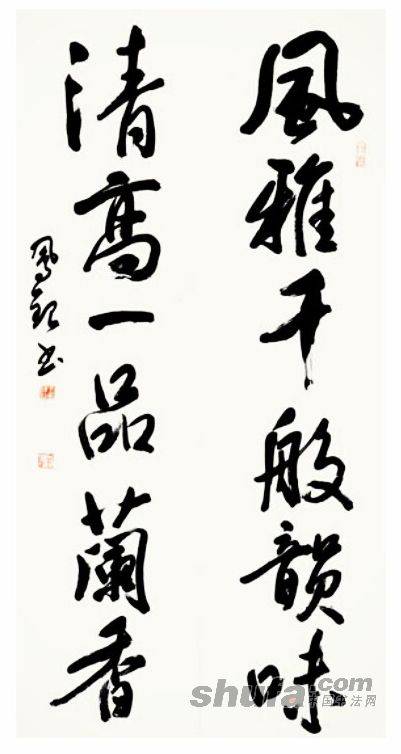 風雅千般韻味
清高一品蘭香
書
shufa.com
中国书法网